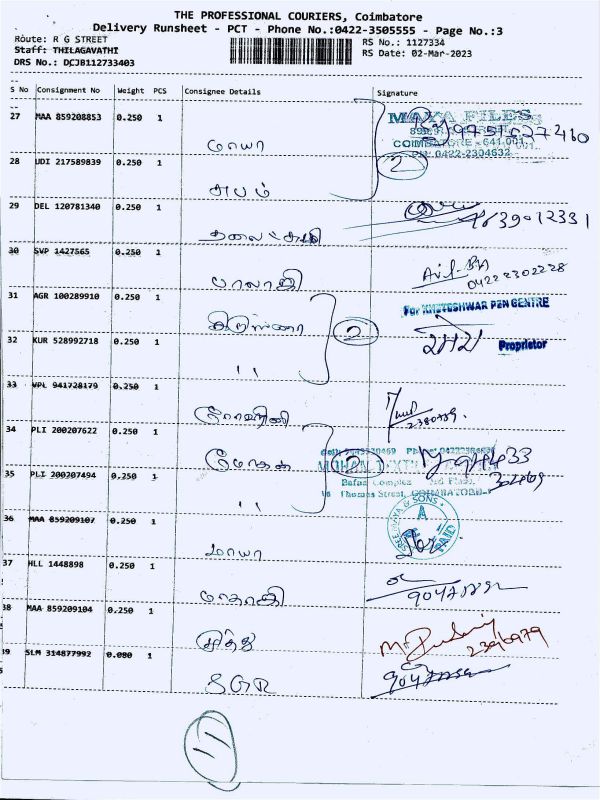 THE PROFESSIONAL COURIERS, Coimbatore
Delivery Runsheet - PCT - Phone No.:0422-3505555 - Page No.:3
Route: R G STREET
RS No.: 1127334
Staff: THILAGAVATHI
RS Date: 02-Mar-2023
DRS No.: DCJB112733403
S No Consignment No Weight PCS Consignee Details Signature
27 MAA 859208853 0.250 1
MAYA FILES
9751627460
COIMBATORE - 641 001.
PH: 0422-2304632
மாயா
2
28 UDI 217589839 0.250 1
அபம்
29 DEL 120781340 0.250 1
9639012331
30 SVP 1427565 0.250 1
பாலாஜி
04222302228
31 AGR 100289910 0.250 1
For KHETESHWAR PEN CENTRE
கிருஸ்ணா
2
Proprietor
32 KUR 528992718 0.250 1
"
33 VPL 941728179 0.250 1
ரோகிணி
2380789.
34 PLI 200207622 0.250 1
2
35 PLI 200207494 0.250 1
Thomas Street, COIMBATORE-
"
36 MAA 859209107 0.250 1
SREE MAYA & SONS
மாயா
37 HLL 1448898 0.250 1
மாதாஜி
38 MAA 859209104 0.250 1
சித்து
2396979
39 SLM 314877992 0.080 1
SGR
11